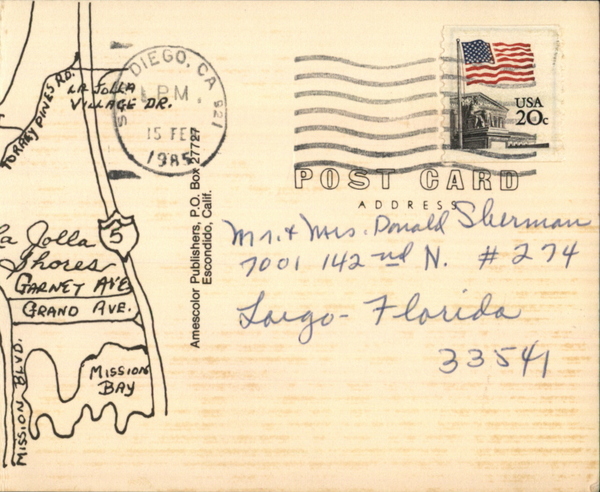 TORREY PINES RD.
LA JOLLA
VILLAGE DR.
DIEGO, CA
PM
15 FE
1985
921
USA
20c
POST CARD
ADDRESS
Amescolor Publishers, P.O. Box 27727
Escondido, Calif.
Mr. & Mrs. Donald Sherman
7001 142nd N. # 274
Largo - Florida
33541
5
La Jolla
Shores
GARNEY AVE
GRAND AVE.
MISSION BLVD.
MISSION
BAY